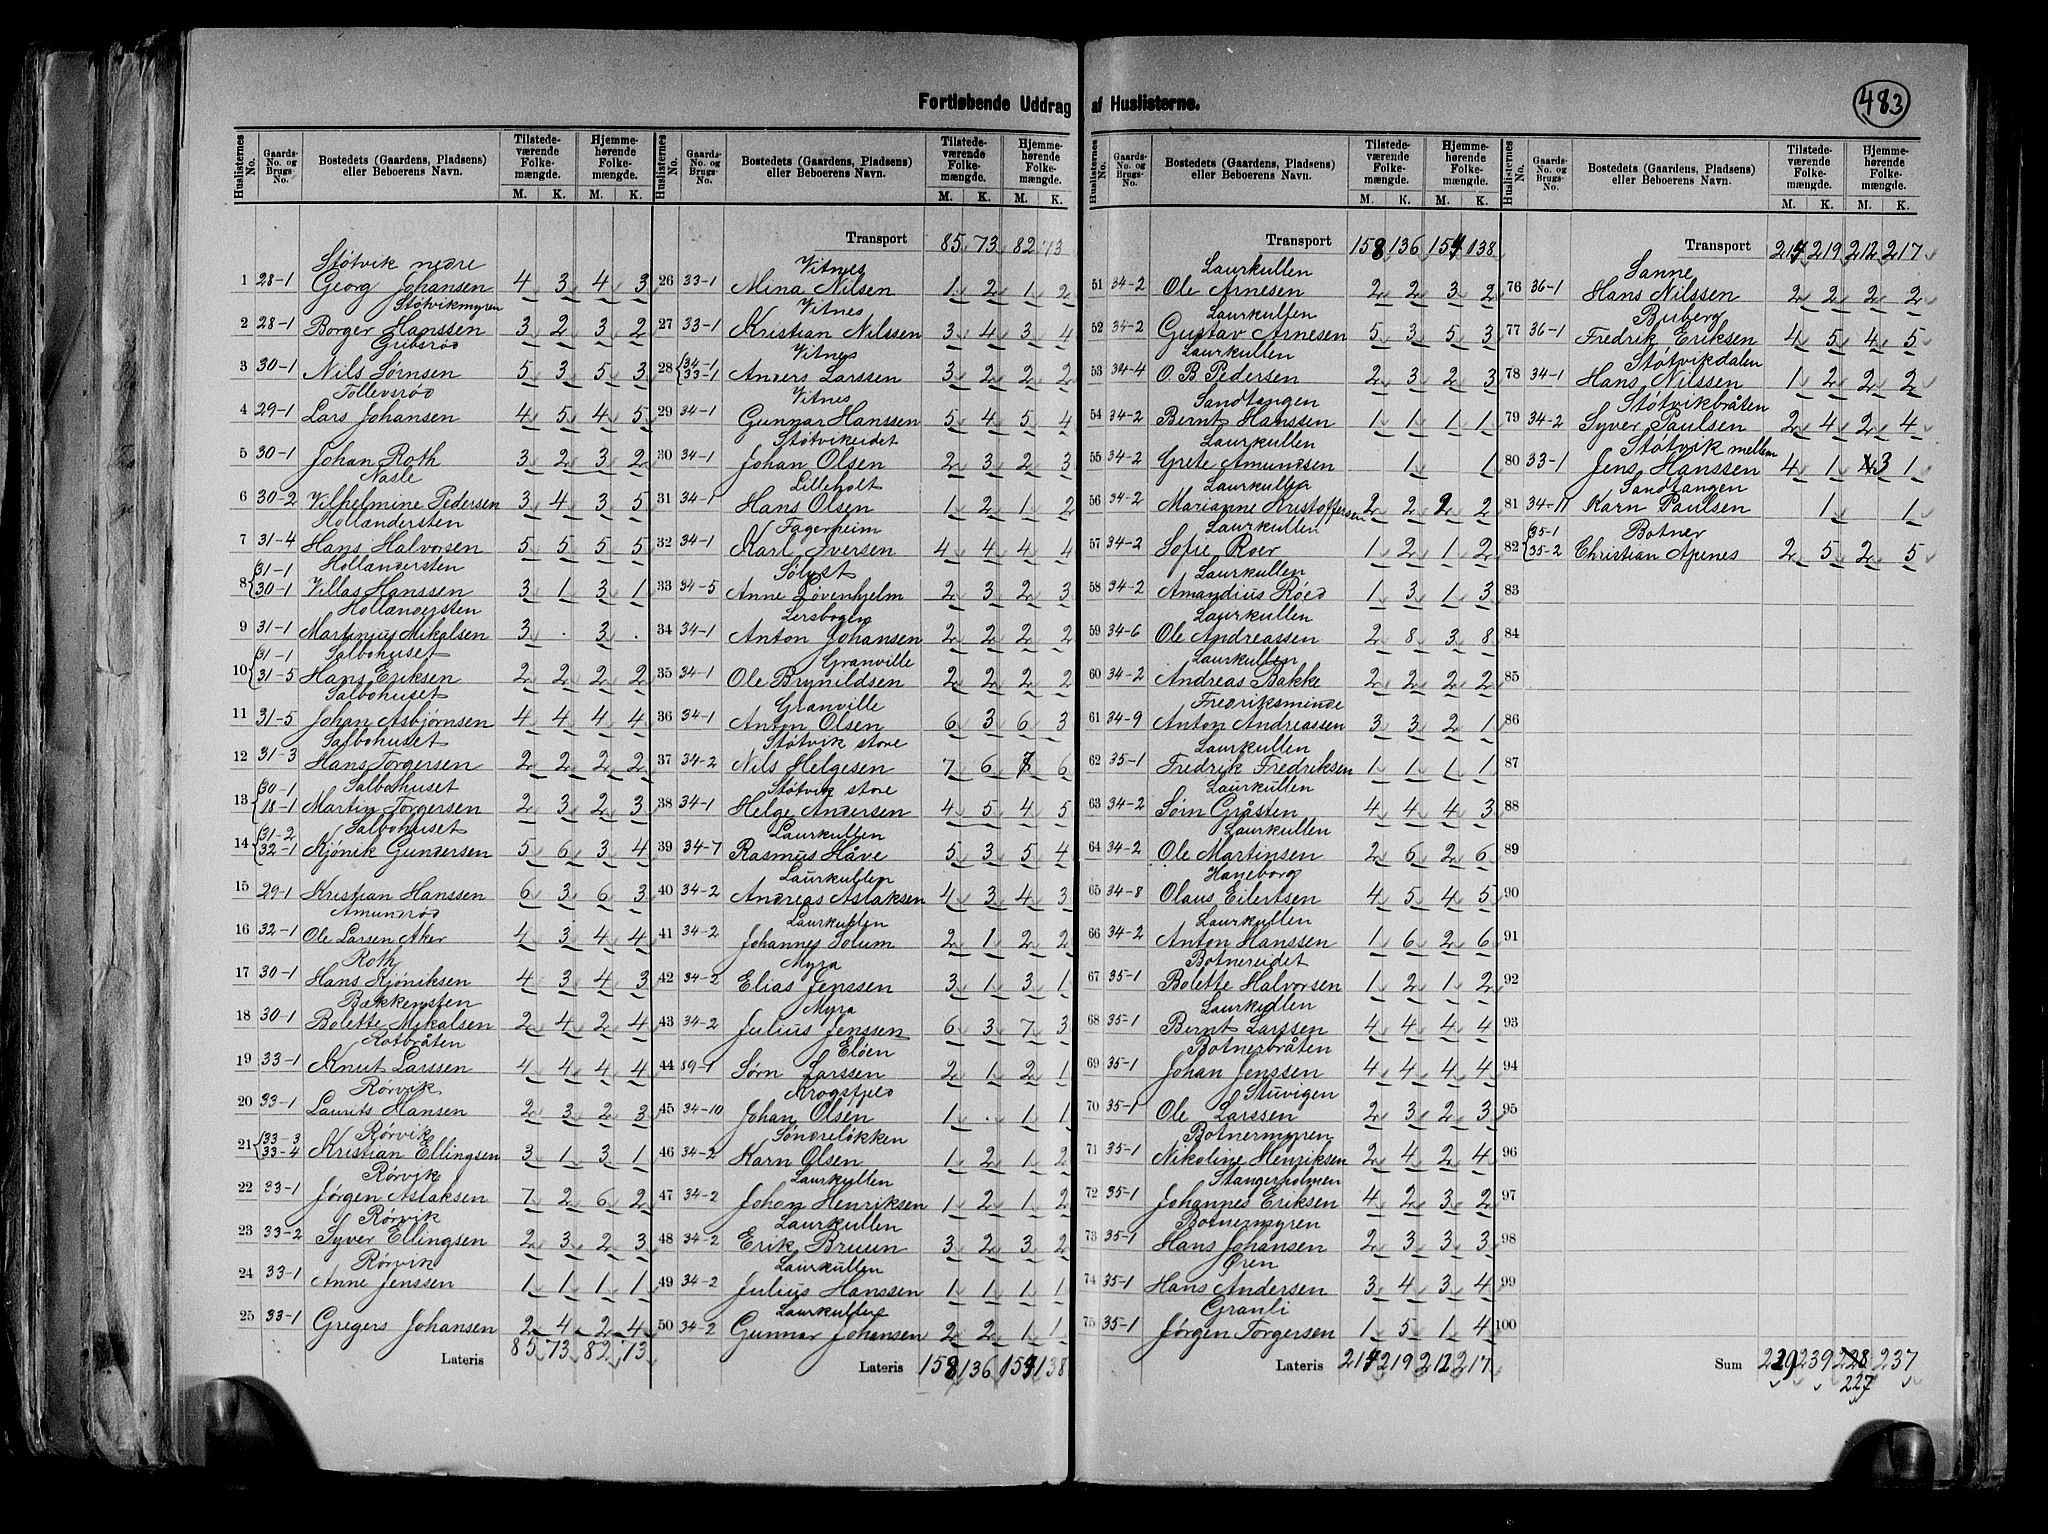 483
Fortløbende Uddrag af Huslisterne.
Huslisternes No. Gaards-No. og Brugs-No. Bostedets (Gaardens, Pladsens) eller Beboerens Navn. Tilstedeværende Folkemængde. M. K. Hjemmehørende Folkemængde. M. K.
Støtvik nedre
1 28-1 Georg Johansen 4 3 4 3
Støtvikmyren
2 28-1 Borger Hanssen 3 2 3 2
Gribsrød
3 30-1 Nils Sørnsen 5 3 5 3
Tollevsrød
4 29-1 Lars Johansen 4 5 4 5
5 30-1 Johan Roth 3 2 3 2
Nasle
6 30-2 Vilhelmine Pedersen 3 4 3 5
Hollændersten
7 31-4 Hans Halvorsen 5 5 5 5
Hollændersten
8 31-1 30-1 Villas Hanssen 3 1 3 1
Hollændersten
9 31-1 Martinius Mikalsen 3 . 3 .
Salbohuset
10 31-1 31-5 Hans Eriksen 2 2 2 2
Salbohuset
11 31-5 Johan Asbjørnsen 4 4 4 4
Salbohuset
12 31-3 Hans Torgersen 2 2 2 2
Salbohuset
13 30-1 18-1 Martin Torgersen 2 3 2 3
Salbohuset
14 31-2 32-1 Kjönik Gundersen 5 6 3 4
15 29-1 Kristian Hanssen 6 3 6 3
Amundrød
16 32-1 Ole Larsen Aker 4 3 4 4
Roth
17 30-1 Hans Kjøniksen 4 3 4 3
Bækkensten
18 30-1 Bolette Mikalsen 2 4 2 4
Rotbråten
19 33-1 Knut Larssen 4 4 4 4
Rørvik
20 33-1 Laurits Hansen 2 3 2 3
Rørvik
21 33-3 33-4 Kristian Ellingsen 3 1 3 1
Rørvik
22 33-1 Jørgen Aslaksen 7 2 6 2
Rørvik
23 33-2 Syver Ellingsen 2 3 2 3
Rørvik
24 33-1 Anne Jenssen 1 1 1 1
25 33-1 Gregers Johansen 2 4 2 4
Lateris 85 73 82 73
Huslisternes No. Gaards-No. og Brugs-No. Bostedets (Gaardens, Pladsens) eller Beboerens Navn. Tilstedeværende Folkemængde. M. K. Hjemmehørende Folkemængde. M. K.
Transport 85 73 82 73
Vitnes
26 33-1 Mina Nilsen 1 2 1 2
Vitnes
27 33-1 Kristian Nilssen 3 4 3 4
Vitnes
28 34-1 33-1 Anders Larssen 3 2 2 2
Vitnes
29 34-1 Gunnar Hanssen 5 4 5 4
Støtvikeidet
30 34-1 Johan Olsen 2 3 2 3
Lilleholt
31 34-1 Hans Olsen 1 2 1 2
Fagerheim
32 34-1 Karl Iversen 4 4 4 4
Sølyst
33 34-5 Anne Løvenhjelm 2 3 2 3
Lersbogen
34 34-1 Anton Johansen 2 2 2 2
Granville
35 34-1 Ole Brynildsen 2 2 2 2
Granville
36 34-1 Anton Olsen 6 3 6 3
Støtvik store
37 34-2 Nils Helgesen 7 6 8 6
Støtvik store
38 34-1 Helge Andersen 4 5 4 5
Laurkullen
39 34-7 Rasmus Håve 5 3 5 4
Laurkullen
40 34-2 Andreas Aslaksen 4 3 4 3
Laurkullen
41 34-2 Johannes Solum 2 1 2 2
Myra
42 34-2 Elias Jenssen 3 1 3 1
Myra
43 34-2 Julius Jenssen 6 3 7 3
Eløen
44 89-1 Sørn Larssen 2 1 2 1
Krogstjeld
45 34-10 Johan Olsen 1 . 1 1
Søndreløkken
46 34-2 Karn Olsen 1 2 1 2
Laurkullen
47 34-2 Johan Henriksen 1 2 1 2
Laurkullen
48 34-2 Erik Bruun 3 2 3 2
Laurkullen
49 34-2 Julius Hanssen 1 1 1 1
Laurkullen
50 34-2 Gunnar Johansen 2 2 1 1
Lateris 158 136 154 138
Huslisternes No. Gaards-No. og Brugs-No. Bostedets (Gaardens, Pladsens) eller Beboerens Navn. Tilstedeværende Folkemængde. M. K. Hjemmehørende Folkemængde. M. K.
Transport 158 136 154 138
Laurkullen
51 34-2 Ole Arnesen 2 2 3 2
Laurkullen
52 34-2 Gustav Arnesen 5 3 5 3
Laurkullen
53 34-4 O. B. Pedersen 2 3 2 3
Sandtangen
54 34-2 Bernt Hanssen 1 1 1 1
Laurkullen
55 34-2 Grete Amundsen 1 1
Laurkullen
56 34-2 Marianne Kristoffersen 2 2 2 2
Laurkullen
57 34-2 Sofie Roer 1 2 1 2
Laurkullen
58 34-2 Amandius Røed 1 3 1 3
Laurkullen
59 34-6 Ole Andreassen 2 8 3 8
Laurkullen
60 34-2 Andreas Bakke 2 2 2 2
Fredriksminde
61 34-9 Anton Andreassen 3 3 2 1
Laurkullen
62 35-1 Fredrik Fredriksen 1 1 1 1
Laurkullen
63 34-2 Sørn Gråsten 4 4 4 3
Laurkullen
64 34-2 Ole Martinsen 2 6 2 6
Haneborg
65 34-8 Olaus Eilertsen 4 5 4 5
Laurkullen
66 34-2 Anton Hanssen 1 6 2 6
Botnereidet
67 35-1 Bolette Halvorsen 1 2 1 2
Laurkullen
68 35-1 Bernt Larssen 4 4 4 4
Botnerbråten
69 35-1 Johan Jenssen 4 4 4 4
Stuvigen
70 35-1 Ole Larssen 2 3 2 3
Botnermyren
71 35-1 Nikoline Henriksen 2 4 2 4
Stangerholmen
72 35-1 Johannes Eriksen 4 2 3 2
Botnermyren
73 35-1 Hans Johansen 2 3 3 3
Øren
74 35-1 Hans Andersen 3 4 3 4
Granli
75 35-1 Jørgen Torgersen 1 5 1 4
Lateris 214 219 212 217
Huslisternes No. Gaards-No. og Brugs-No. Bostedets (Gaardens, Pladsens) eller Beboerens Navn. Tilstedeværende Folkemængde. M. K. Hjemmehørende Folkemængde. M. K.
Transport 214 219 212 217
Sanne
76 36-1 Hans Nilssen 2 2 2 2
Buberg
77 36-1 Fredrik Eriksen 4 5 4 5
Støtvikdalen
78 34-1 Hans Nilssen 1 2 2 2
Støtvikbråten
79 34-2 Syver Paulsen 2 4 2 4
Støtvik mellem
80 33-1 Jens Hanssen 4 1 4 3 1
Sandtangen
81 34-11 Karn Paulsen 1 1
Botner
82 35-1 35-2 Christian Apenes 2 5 2 5
83
84
85
86
87
88
89
90
91
92
93
94
95
96
97
98
99
100
Sum 229 239 228 237
227